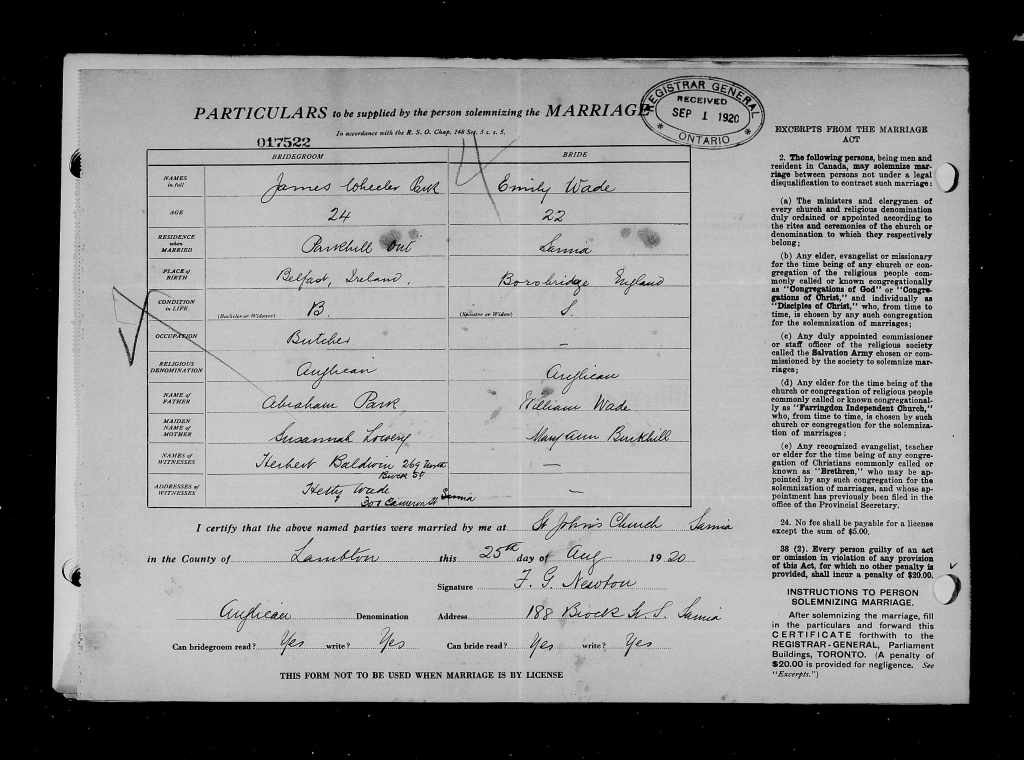 PARTICULARS to be supplied by the person solemnizing the MARRIAGE
REGISTRAR GENERAL
RECEIVED
SEP 1 1920
ONTARIO
In accordance with the R. S. O. Chap. 148 Sec. 5 s. s. 5.
017522
BRIDEGROOM BRIDE
NAMES in full James Wheeler Park Emily Wade
AGE 24 22
RESIDENCE when MARRIED Parkhill Ont Sarnia
PLACE of BIRTH Belfast, Ireland. Borobridge England
CONDITION in LIFE (Bachelor or Widower) B. (Spinster or Widow) S.
OCCUPATION Butcher —
RELIGIOUS DENOMINATION Anglican Anglican
NAME of FATHER Abraham Park William Wade
MAIDEN NAME of MOTHER Susannah Lowery Mary Ann Burkhill
NAMES of WITNESSES Herbert Baldwin 269 North —
Brock St
ADDRESSES of WITNESSES Hetty Wade —
301 Cameron St Sarnia
I certify that the above named parties were married by me at St John's Church Sarnia
in the County of Lambton this 25th day of Aug 1920
Signature F. G. Newton
Anglican Denomination Address 188 Brock St. S. Sarnia
Can bridegroom read? Yes write? Yes Can bride read? Yes write? Yes
THIS FORM NOT TO BE USED WHEN MARRIAGE IS BY LICENSE
EXCERPTS FROM THE MARRIAGE
ACT
2. The following persons, being men and
resident in Canada, may solemnize mar-
riage between persons not under a legal
disqualification to contract such marriage:
(a) The ministers and clergymen of
every church and religious denomination
duly ordained or appointed according to
the rites and ceremonies of the church or
denomination to which they respectively
belong;
(b) Any elder, evangelist or missionary
for the time being of any church or con-
gregation of the religious people com-
monly called or known congregationally
as "Congregations of God" or "Congre-
gations of Christ," and individually as
"Disciples of Christ," who, from time to
time, is chosen by any such congregation
for the solemnization of marriages;
(c) Any duly appointed commissioner
or staff officer of the religious society
called the Salvation Army chosen or com-
missioned by the society to solemnize mar-
riages;
(d) Any elder for the time being of the
church or congregation of religious people
commonly called or known congregational-
ly as "Farringdon Independent Church,"
who, from time to time, is chosen by such
church or congregation for the solemniza-
tion of marriages;
(e) Any recognized evangelist, teacher
or elder for the time being of any congre-
gation of Christians commonly called or
known as "Brethren," who may be ap-
pointed by any such congregation for the
solemnization of marriages, and whose ap-
pointment has previously been filed in the
office of the Provincial Secretary.
24. No fee shall be payable for a license
except the sum of $5.00.
38 (2). Every person guilty of an act
or omission in violation of any provision
of this Act, for which no other penalty is
provided, shall incur a penalty of $20.00.
INSTRUCTIONS TO PERSON
SOLEMNIZING MARRIAGE.
After solemnizing the marriage, fill
in the particulars and forward this
CERTIFICATE forthwith to the
REGISTRAR-GENERAL, Parliament
Buildings, TORONTO. (A penalty of
$20.00 is provided for negligence. See
"Excerpts.")